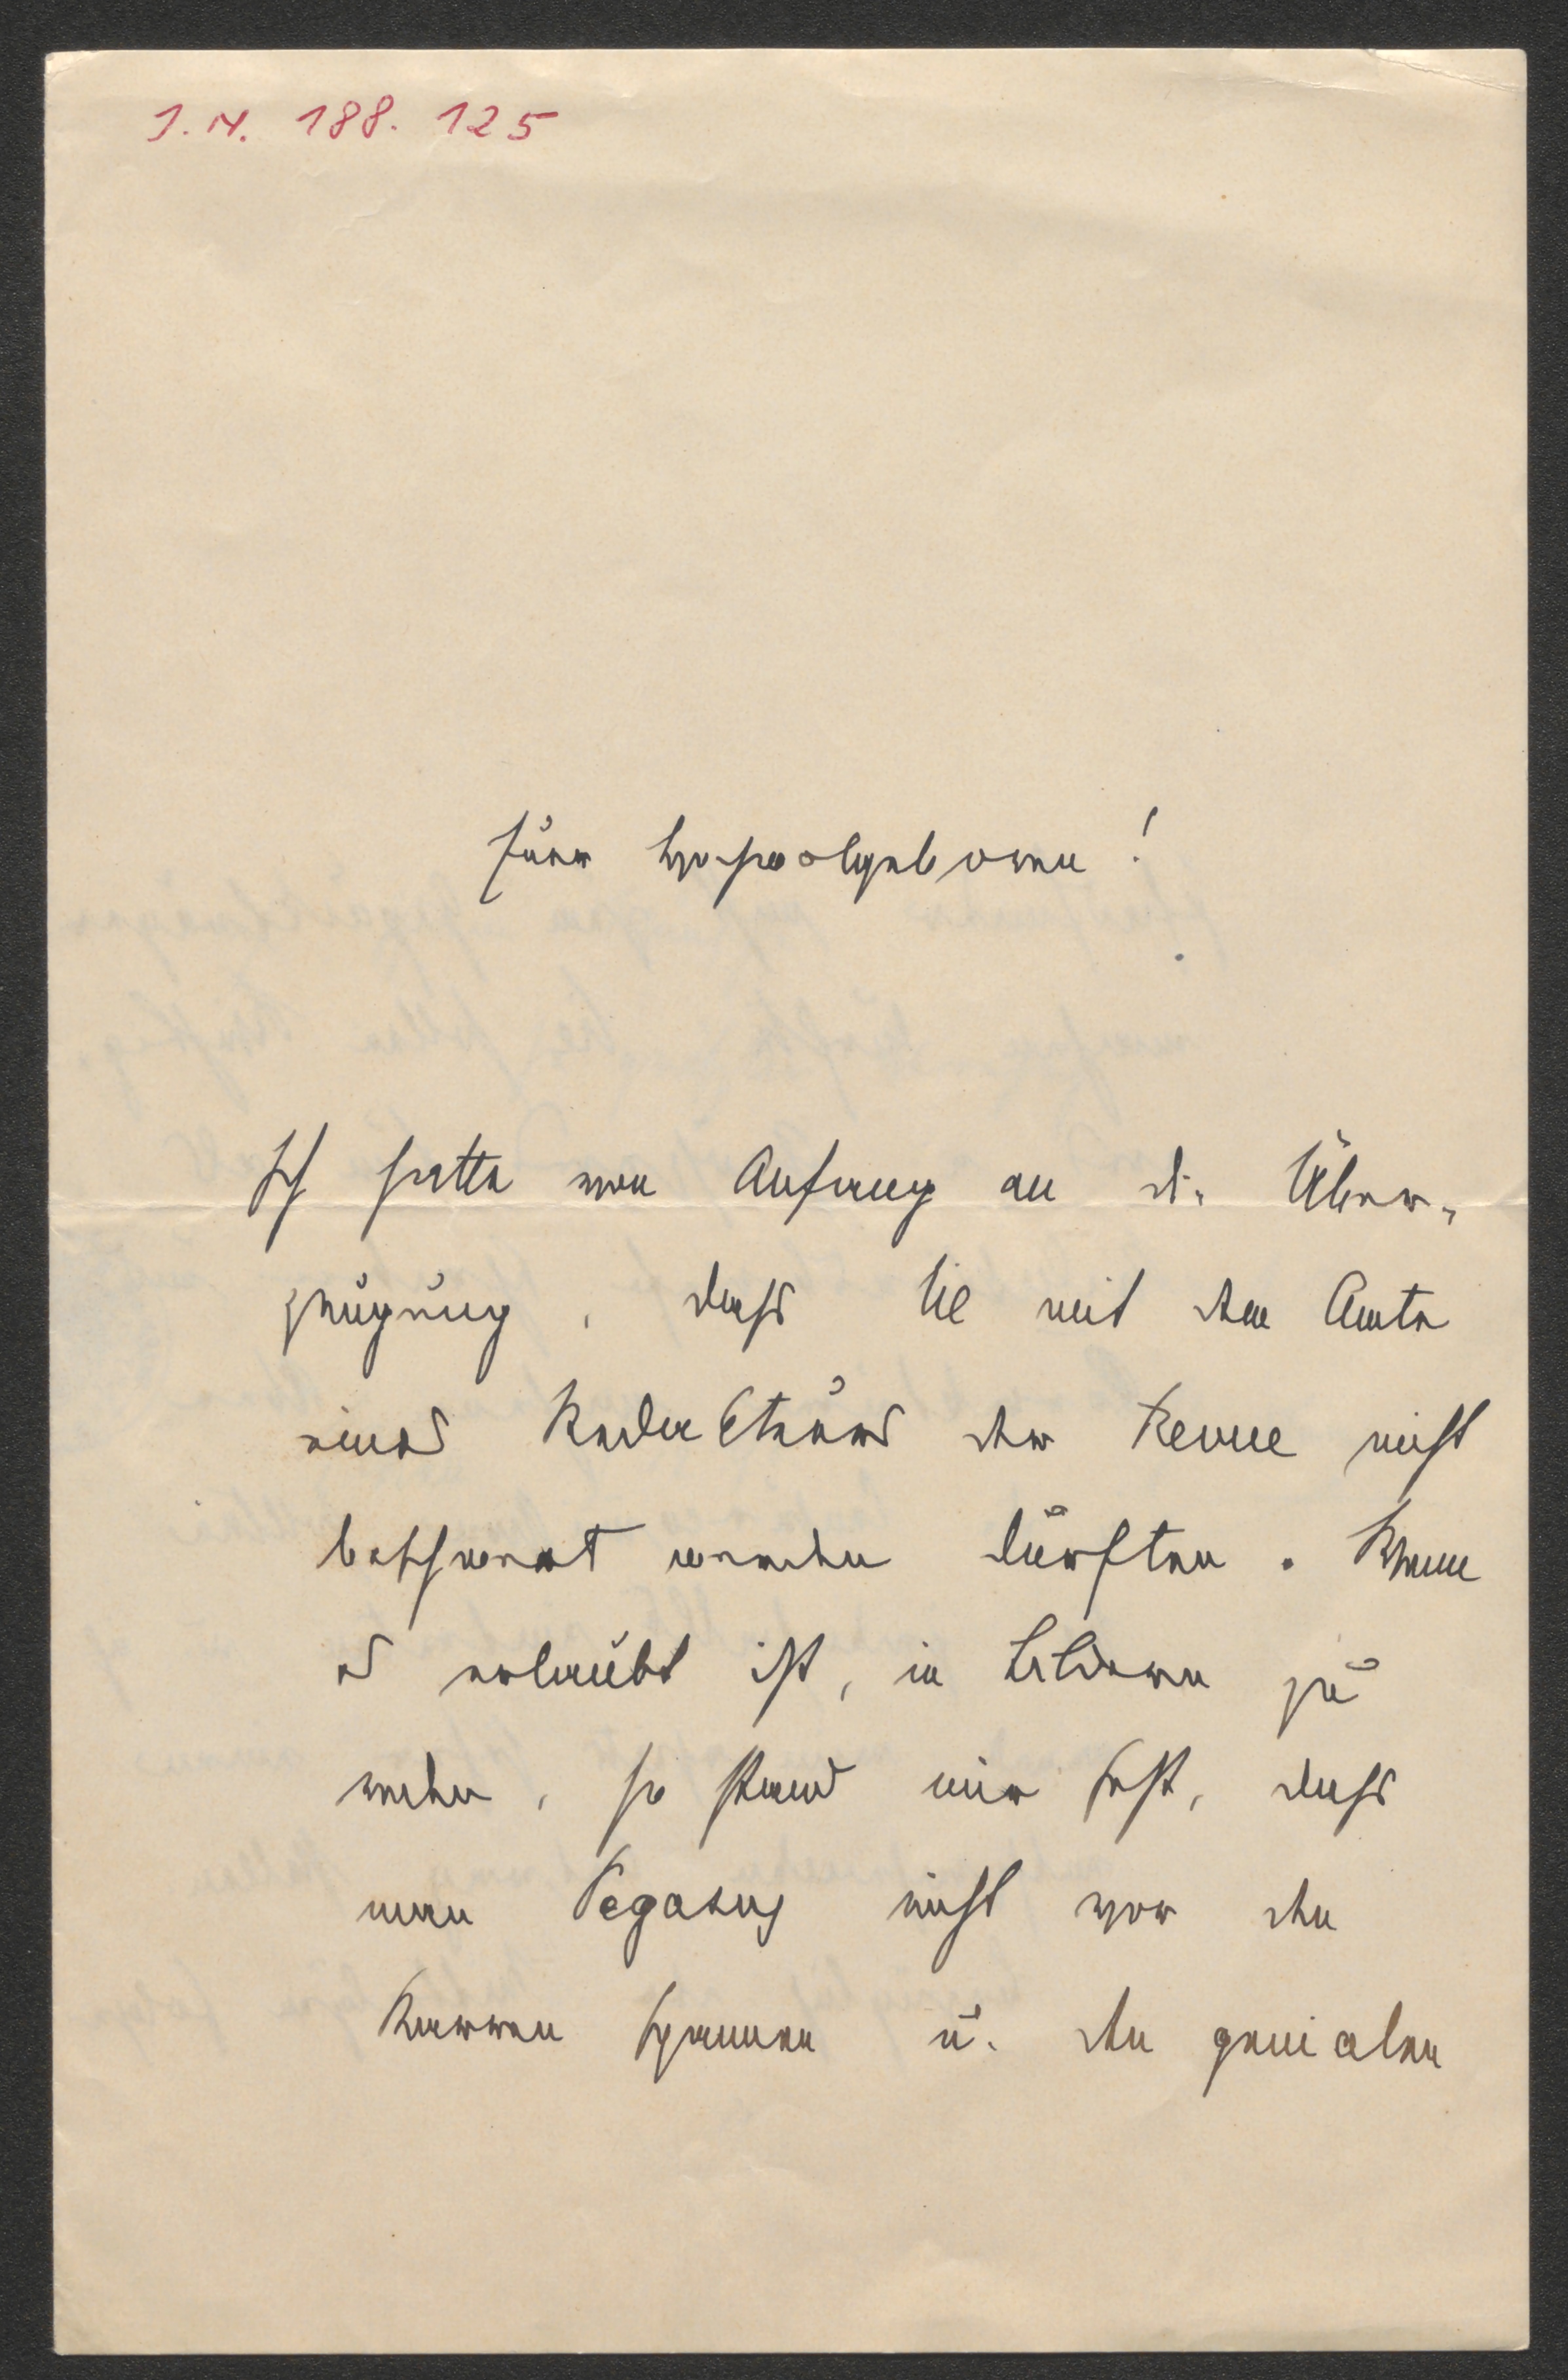 J. N. 188. 125
Euer Hochwolgeboren!
Ich hatte von Anfang an die Über-
zeugung, dass Sie mit dem Amte
eines Redacteurs der Revue nicht
beschwert werden dürften. Wenn
es erlaubt ist, in Bildern zu
reden, so stand mir fest, dass
man Pegasus nicht vor den
Karren spannen u. den genialen